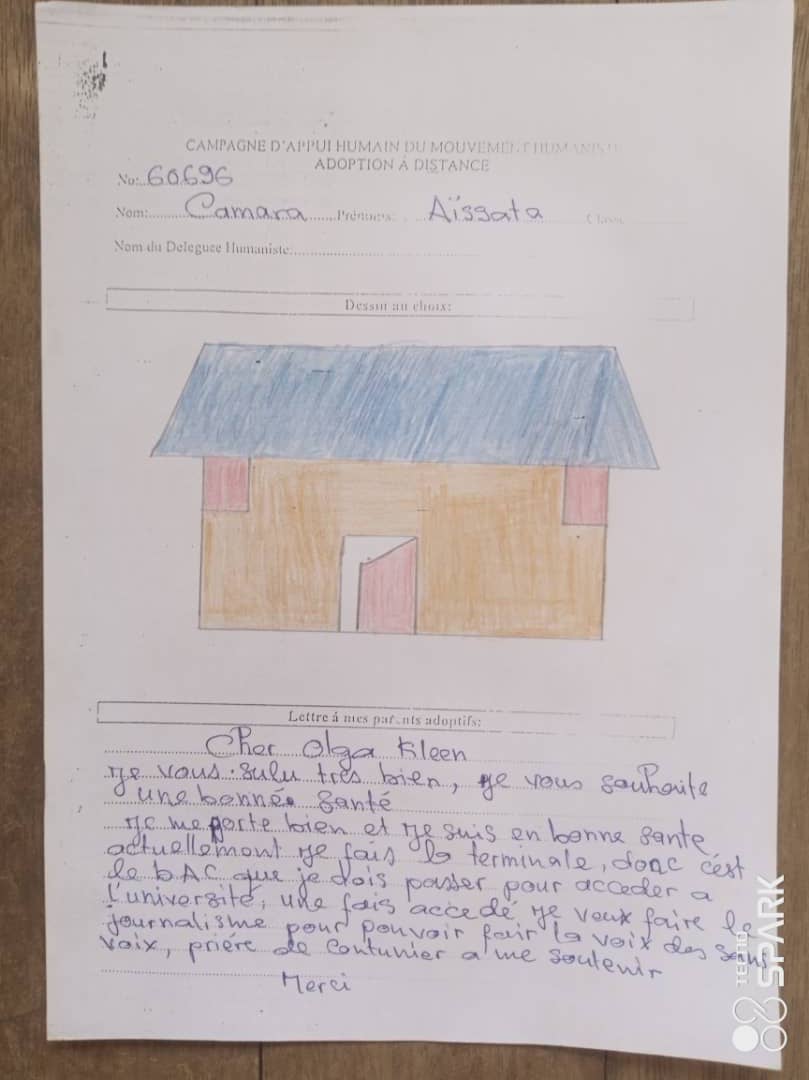 CAMPAGNE D'APPUI HUMAIN DU MOUVEMENT HUMANISTE
ADOPTION À DISTANCE
No:..60696
Nom:.....Camara......Prénoms:....Aïssata Classe
Nom du Deleguee Humaniste:
Dessin au choix:
Lettre à mes parents adoptifs:
Cher Olga Kleen
Je vous sulu très bien, je vous souhaite
une bonnée santé
Je me porte bien et je suis en bonne sante
actuellement je fais la terminale, donc c'est
le bAC que je dois passer pour acceder a
l'université, une fais accedé je veux faire le
journalisme pour pouvoir fair la voix des sans
voix, prière de contunier a me soutenir
Merci
TECNO
SPARK